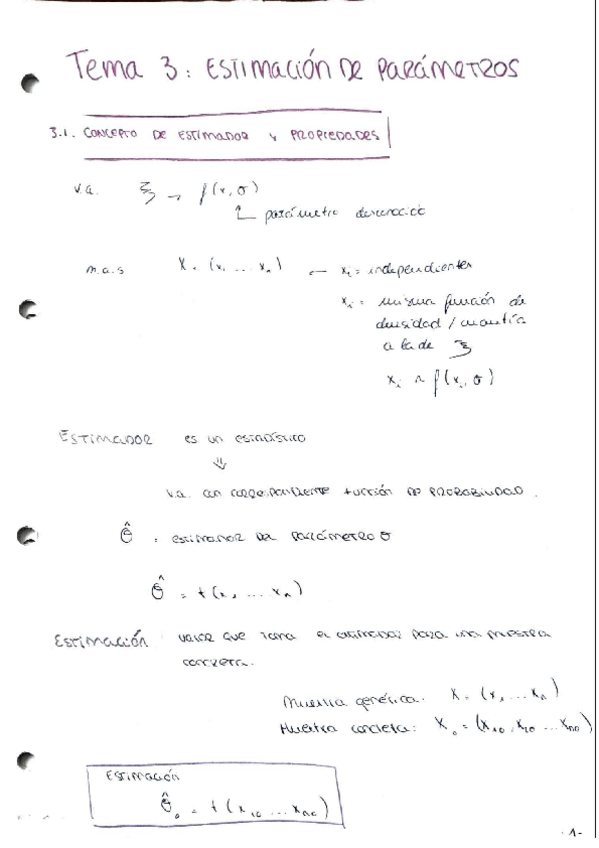 Tema 3: ESTIMACIÓN DE PARÁMETROS
3.1. CONCEPTO DE ESTIMADOR Y PROPIEDADES
v.a. ξ → f(x, σ)
parámetro desconocido
m.a.s X = (x, ... xn) ← xi = independientes
xi = misma función de
densidad / cuantía
a la de ξ
xi ~ f(xi, σ)
ESTIMADOR es un estadístico
⇓
v.a. con correspondiente función de PROBABILIDAD.
θ̂ : estimador del parámetro σ
θ̂ = t(x, ... xn)
ESTIMACIÓN: valor que toma el estimador para una muestra
concreta.
Muestra genérica: X = (x, ... xn)
Muestra concreta: X₀ = (x10, x20 ... xn0)
Estimación
θ̂₀ = t(x10 ... xn0)
-1-